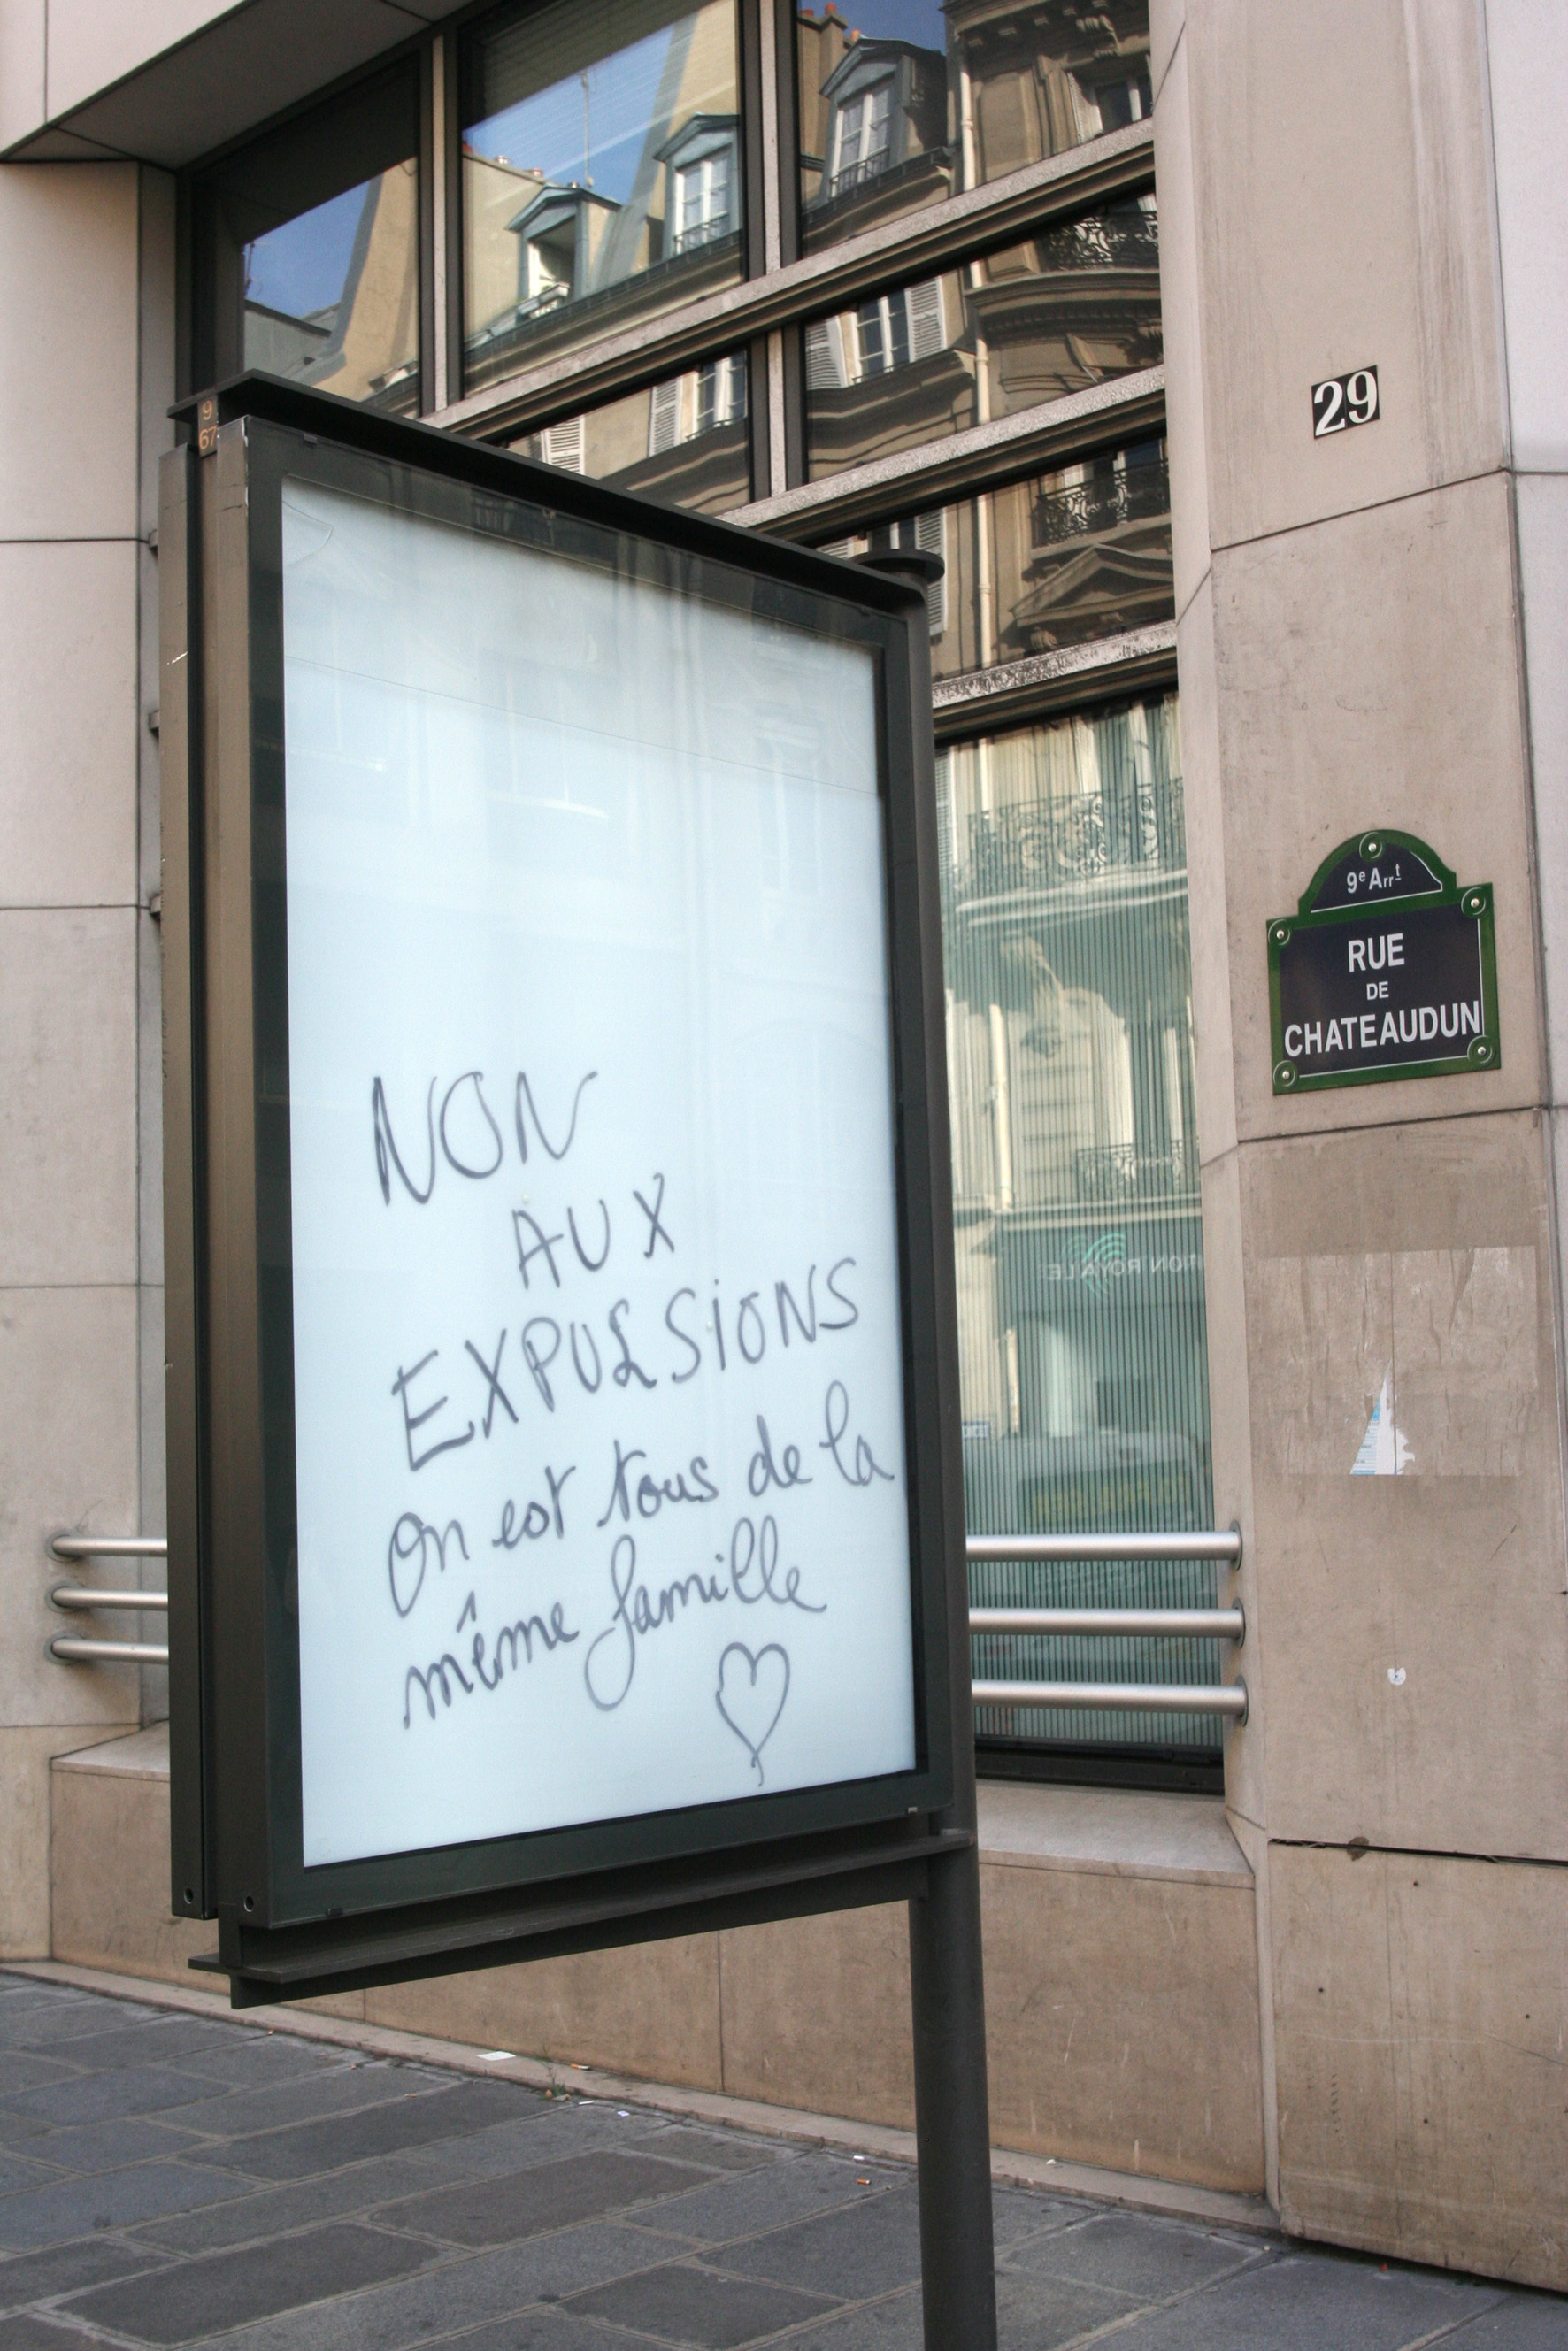 9
67
29
9e Arrt
RUE
DE
CHATEAUDUN
NON
AUX
EXPULSIONS
On est tous de la
même famille
ROYALE